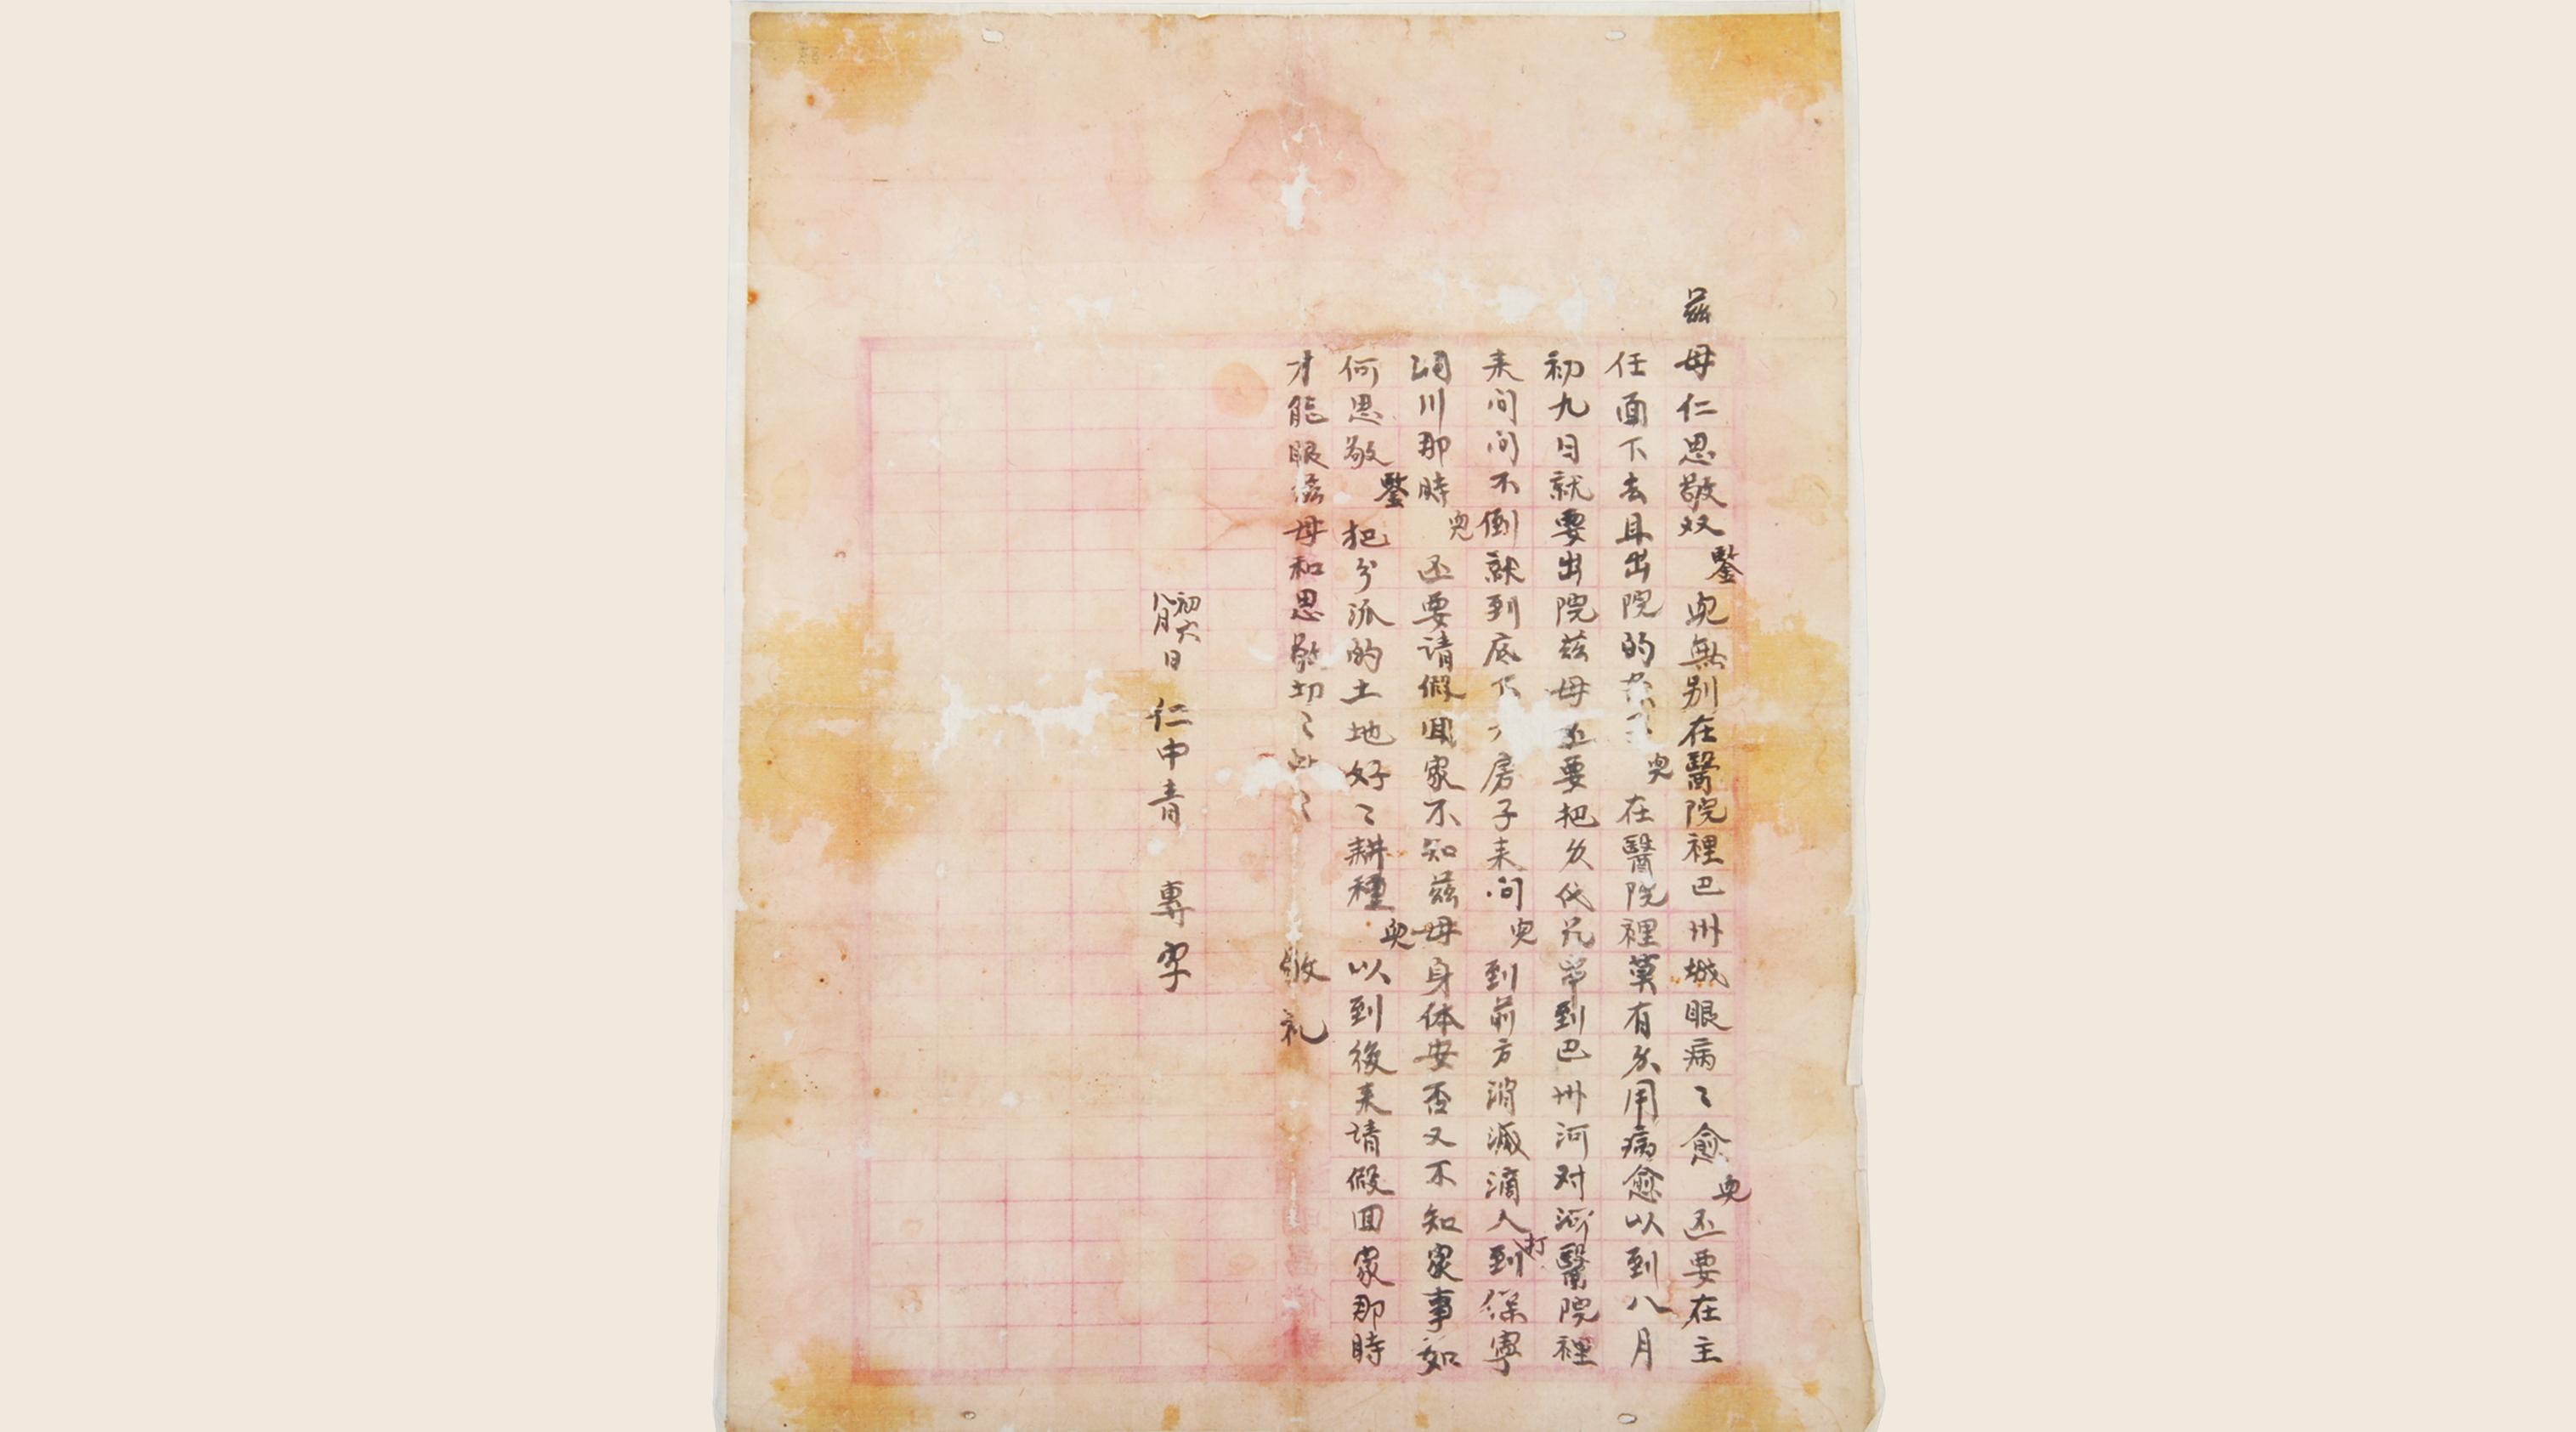 兹母仁思敬双鑒兒無别在醫院裡巴州城眼病〻愈兒还要在主
任面下去且出院的兒在醫院裡莫有久用病愈以到八月
初九日就要出院兹母还要把衣代到巴州河对河醫院裡
来问问不倒就到底下房子来问兒到前方消滅滴人打到保寧
潤川那時兒还要请假囬家不知兹母身体安否又不知家事如
何思敬鑒把分派的土地好〻耕種兒以到後来请假囬家那時
才能眼兹母和思敬切〻〻敬礼
八月初六日 仁申青 專字